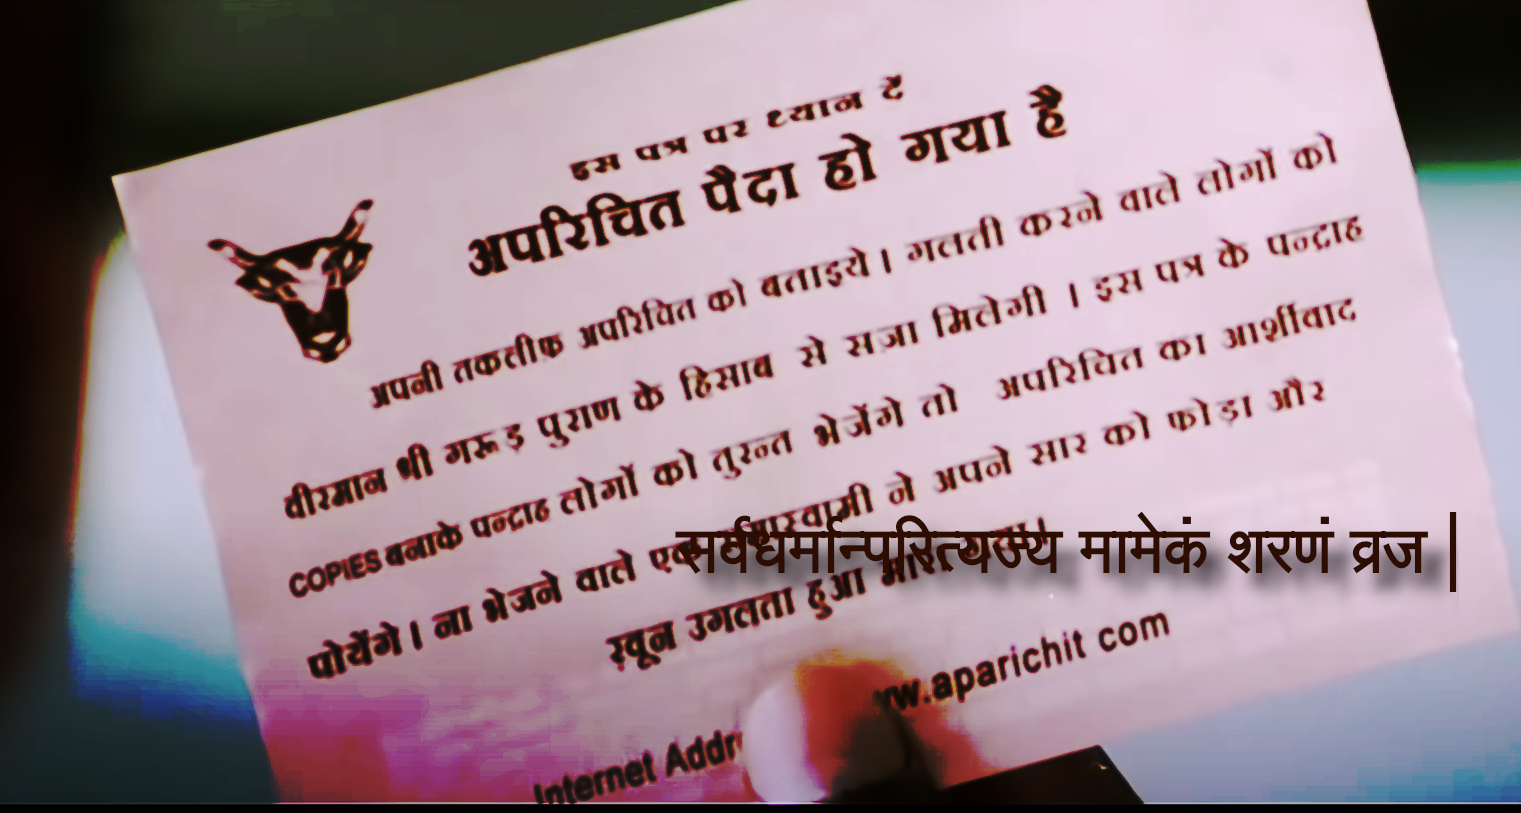 इस पत्र पर ध्यान दें
अपरिचित पैदा हो गया है
अपनी तकलीफ अपरिचित को बताइये। गलती करने वाले लोगों को
वीरमान श्री गरूड़ पुराण के हिसाब से सजा मिलेगी । इस पत्र के पन्द्राह
COPIES बनाके पन्द्राह लोगों को तुरन्त भेजेंगे तो अपरिचित का आर्शीवाद
पोयेंगे। ना भेजने वाले एक ने अपने सार को फोड़ा और
सर्वधर्मान्परित्यज्य मामेकं शरणं व्रज |
खून उगलता हुआ
Internet ww.aparichit com